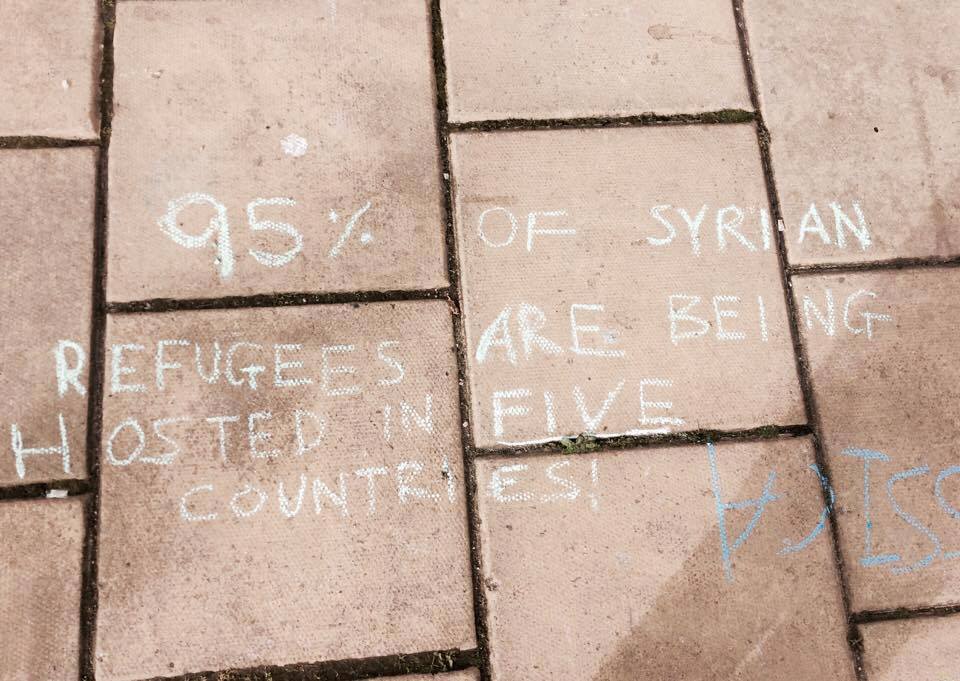 95% OF SYRIAN
REFUGEES ARE BEING
HOSTED IN FIVE
COUNTRIES!